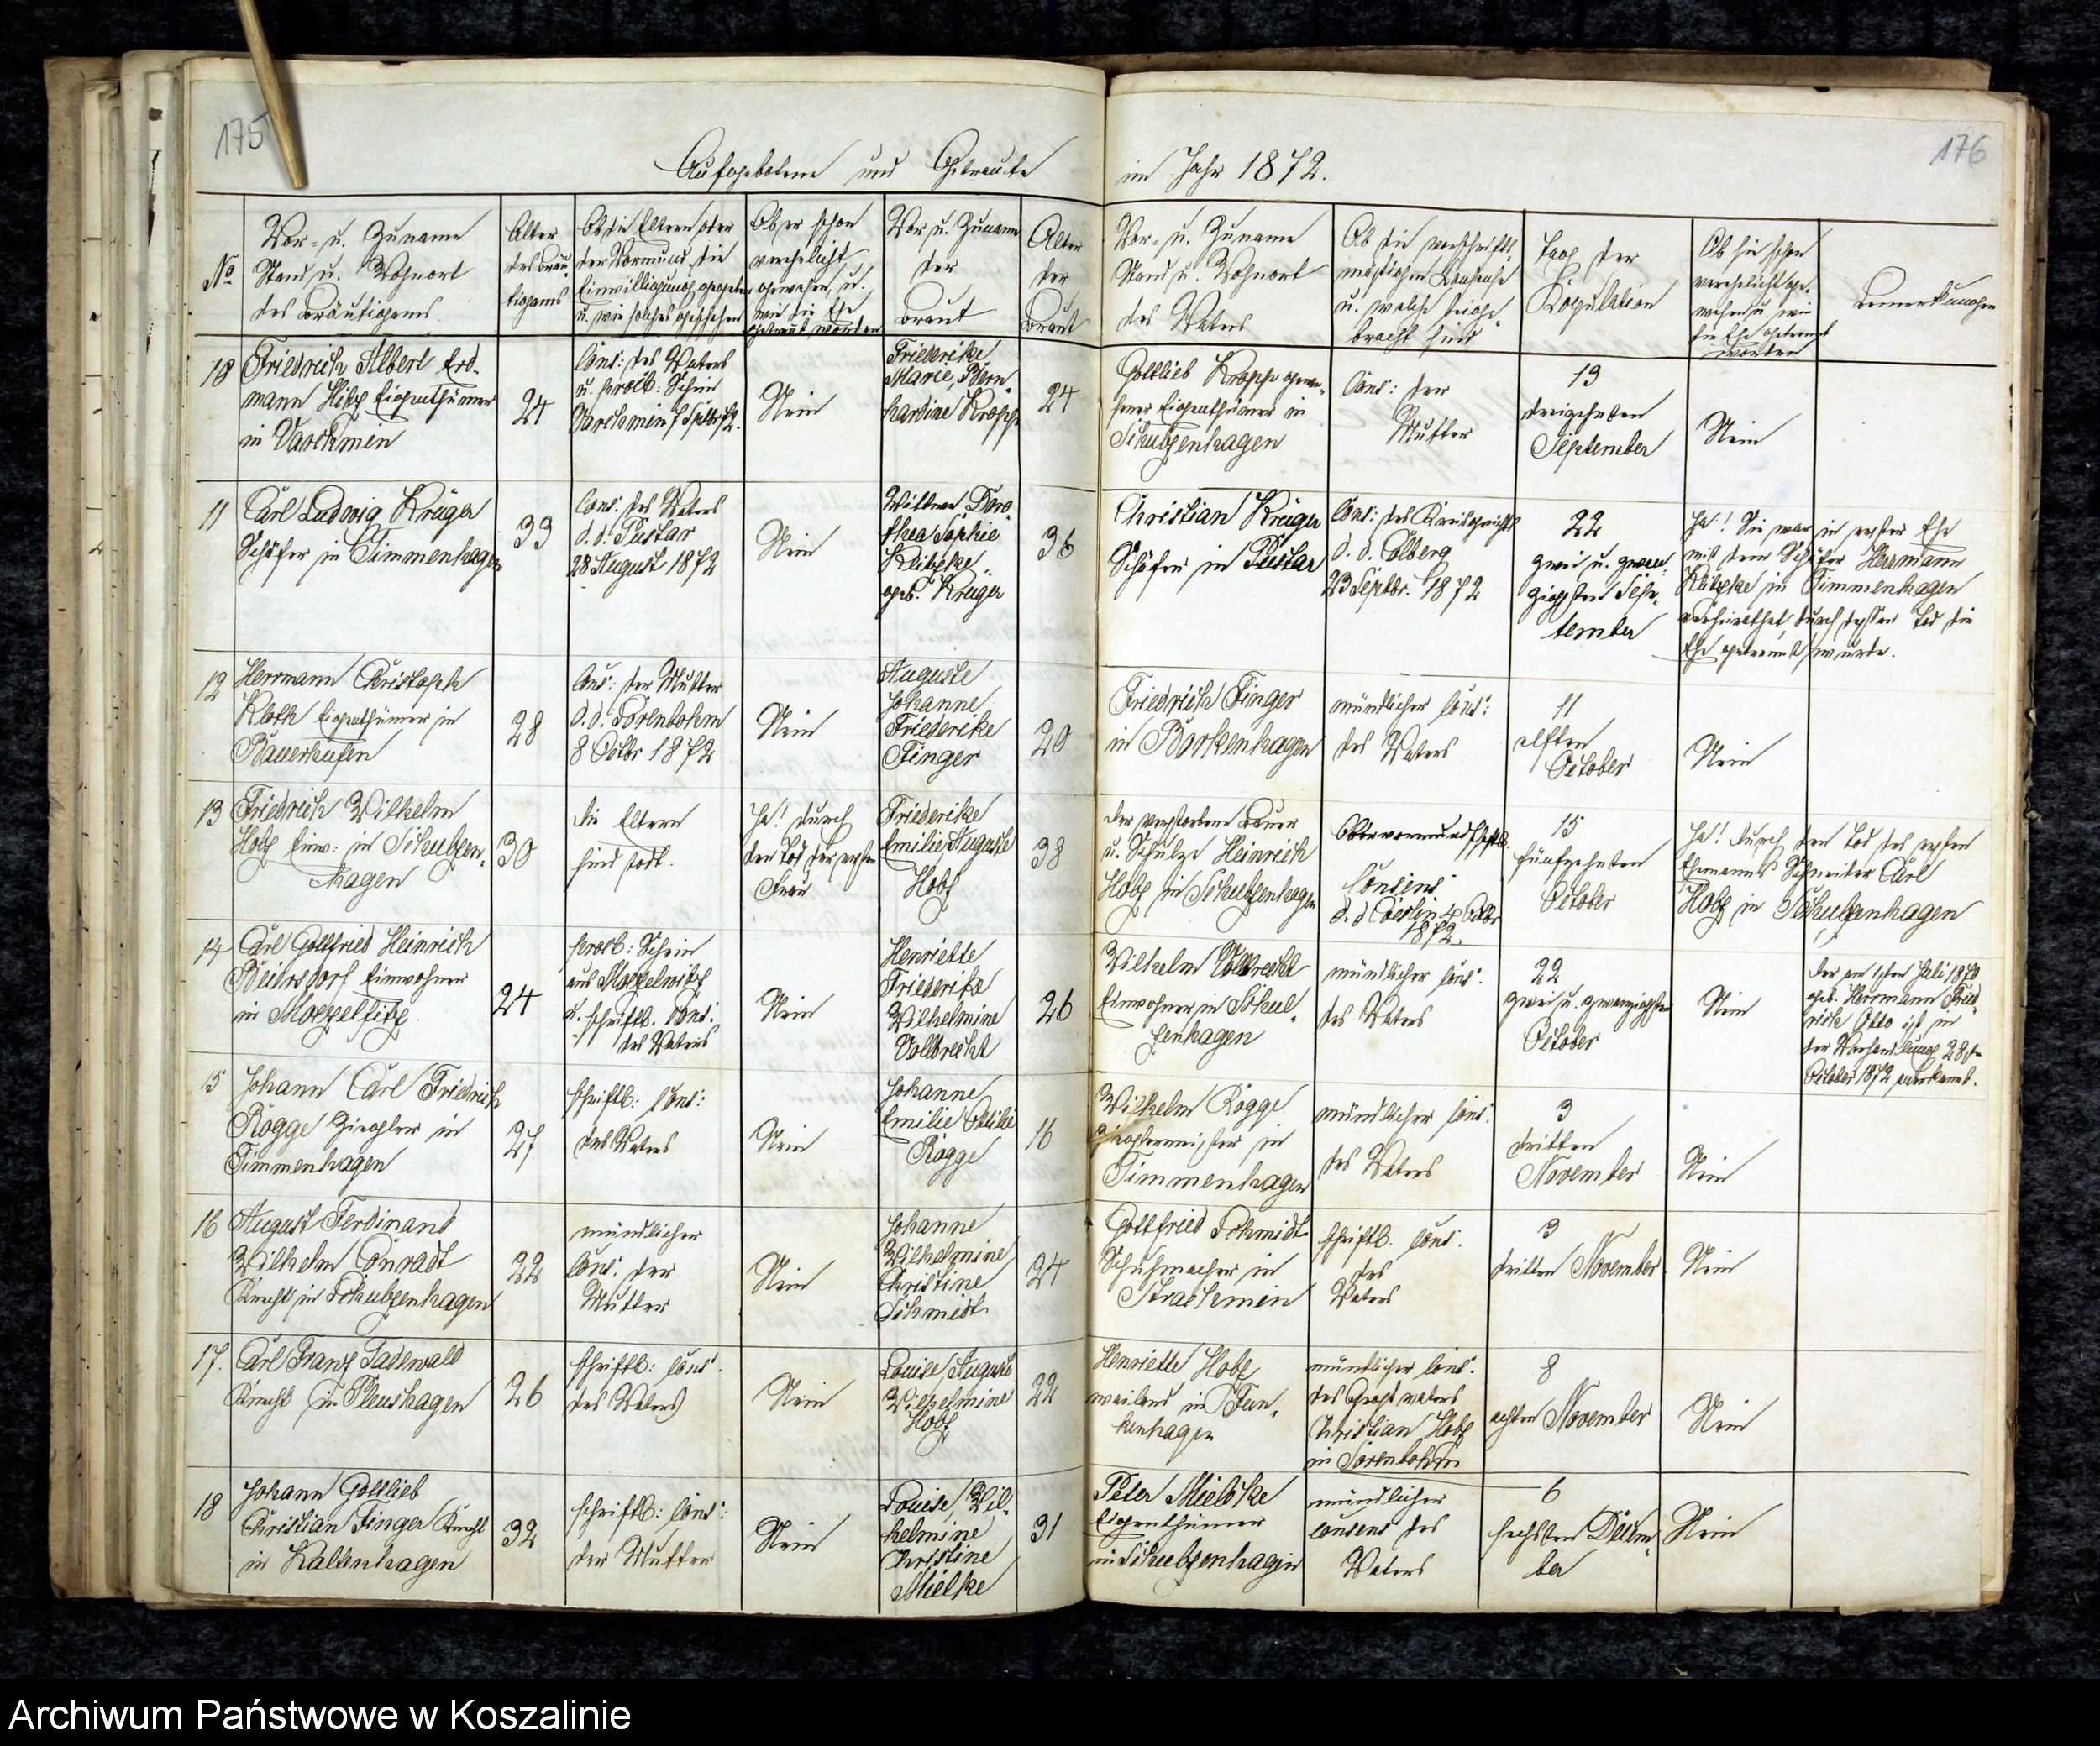 175
176
Aufgebotene und Getraute
im Jahr 1872.
No
Vor- u. Zuname
Stand u. Wohnort
des Bräutigams
Alter
des Bräu-
tigams
Ob die Eltern oder
der Vormund die
Einwilligung gegeben
u. wie solches geschehen
Ob er schon
verehelicht
gewesen, u.
wie die Ehe
getrennt worden
Vor u. Zuname
der
Braut
Alter
der
Braut
Vor- u. Zuname
Stand u. Wohnort
des Vaters
Ob die vorschrifts-
mäßigen Consense
u. welche beige-
bracht sind
Tag der
Copulation
Ob sie schon
verehelicht ge-
wesen u. wie
die Ehe getrennt
worden
Bemerkungen
10
Friedrich Albert Erd-
mann Eigenthümer
in Varchmin
24
Cons: des Vaters
u. procl: Schein
Varchmin
Nein
Friederike
Marie, Bern-
hardine Kropp
24
Gottlieb Kropp gewe-
sener Eigenthümer in
Schulzenhagen
Cons: der
Mutter
13
dreizehnten
September
Nein
11
Carl Ludwig Krüger
Schäfer in Timmenhagen
33
Cons: des Vaters
d. d. Pustar
28 August 1872
Nein
Wittwe Doro-
thea Sophie
Klitzke
geb. Krüger
36
Christian Krüger
Schäfer in Pustar
Cons: des Kreisgerichts
d. d. Colberg
23 Septbr. 1872
22
zwei u. zwan-
zigsten Sep-
tember
Ja! Sie war in erster Ehe
mit dem Schäfer Herrmann
Klitzke in Timmenhagen
verheirathet, durch dessen Tod die
Ehe getrennt wurde.
12
Herrmann Christoph
Kloth Eigenthümer in
Bauerhufen
28
Cons: der Mutter
d. d. Sorenbohm
8 Octbr 1872
Nein
Auguste
Johanne
Friederike
Finger
20
Friedrich Finger
in Borkenhagen
mündlicher Cons:
des Vaters
11
elften
October
Nein
13
Friedrich Wilhelm
Hobs Einw: in Schulzen-
hagen
30
die Eltern
sind todt.
Ja! durch
den Tod der ersten
Frau
Friederike
Emilie Auguste
Hobs
38
der verstorbene Bauer
u. Schulze Heinrich
Hobs in Schulzenhagen
Obervormundschaftl.
Consens
d. d. Coeslin 4 Octbr
1872.
15
fünfzehnten
October
Ja! durch den Tod des ersten
Ehemanns Schneider Carl
Hobs in Schulzenhagen
14
Carl Gottfried Heinrich
Beiersdorf Einwohner
in
24
procl: Schein
aus
u. schriftl. Cons:
des Vaters
Nein
Henriette
Friederike
Wilhelmine
Vollbrecht
26
Wilhelm Vollbrecht
Einwohner in Schul-
zenhagen
mündlicher Cons:
des Vaters
22
zwei u. zwanzigsten
October
Nein
Der am Juli 1870
geb. Herrmann Fried-
rich Otto ist in
der Verhandlung 28ten
October 1872 anerkannt.
15
Johann Carl Friedrich
Rogge Ziegler in
Timmenhagen
27
schriftl: Cons:
des Vaters
Nein
Johanne
Emilie Ottilie
Rogge
16
Wilhelm Rogge
Zieglermeister in
Timmenhagen
mündlicher Cons:
des Vaters
3
dritten
November
Nein
16
August Ferdinand
Wilhelm Conradt
Knecht in Schulzenhagen
22
mündlicher
Cons: der
Mutter
Nein
Johanne
Wilhelmine
Christine
Schmidt
24
Gottfried Schmidt
Schuhmacher in
Strachmin
schriftl. Cons:
des
Vaters
3
dritten November
Nein
17.
Carl Franz Sadewald
Knecht in Pleushagen
26
schriftl: Cons:
des Vaters
Nein
Louise Auguste
Wilhelmine
Hobs
22
Henriette Hobs
weiland in Fun-
kenhagen
mündlicher Cons:
des Großvaters
Christian Hobs
in Sorenbohm
8
achten November
Nein
18
Johann Gottlieb
Christian Finger Knecht
in Kaltenhagen
32
schriftl: Cons:
der Mutter
Nein
Louise, Wil-
helmine
Christine
Mielke
31
Peter Mielcke
Eigenthümer
in Schulzenhagen
mündlicher
Consens des
Vaters
6
sechsten Decem-
ber
Nein
Archiwum Państwowe w Koszalinie